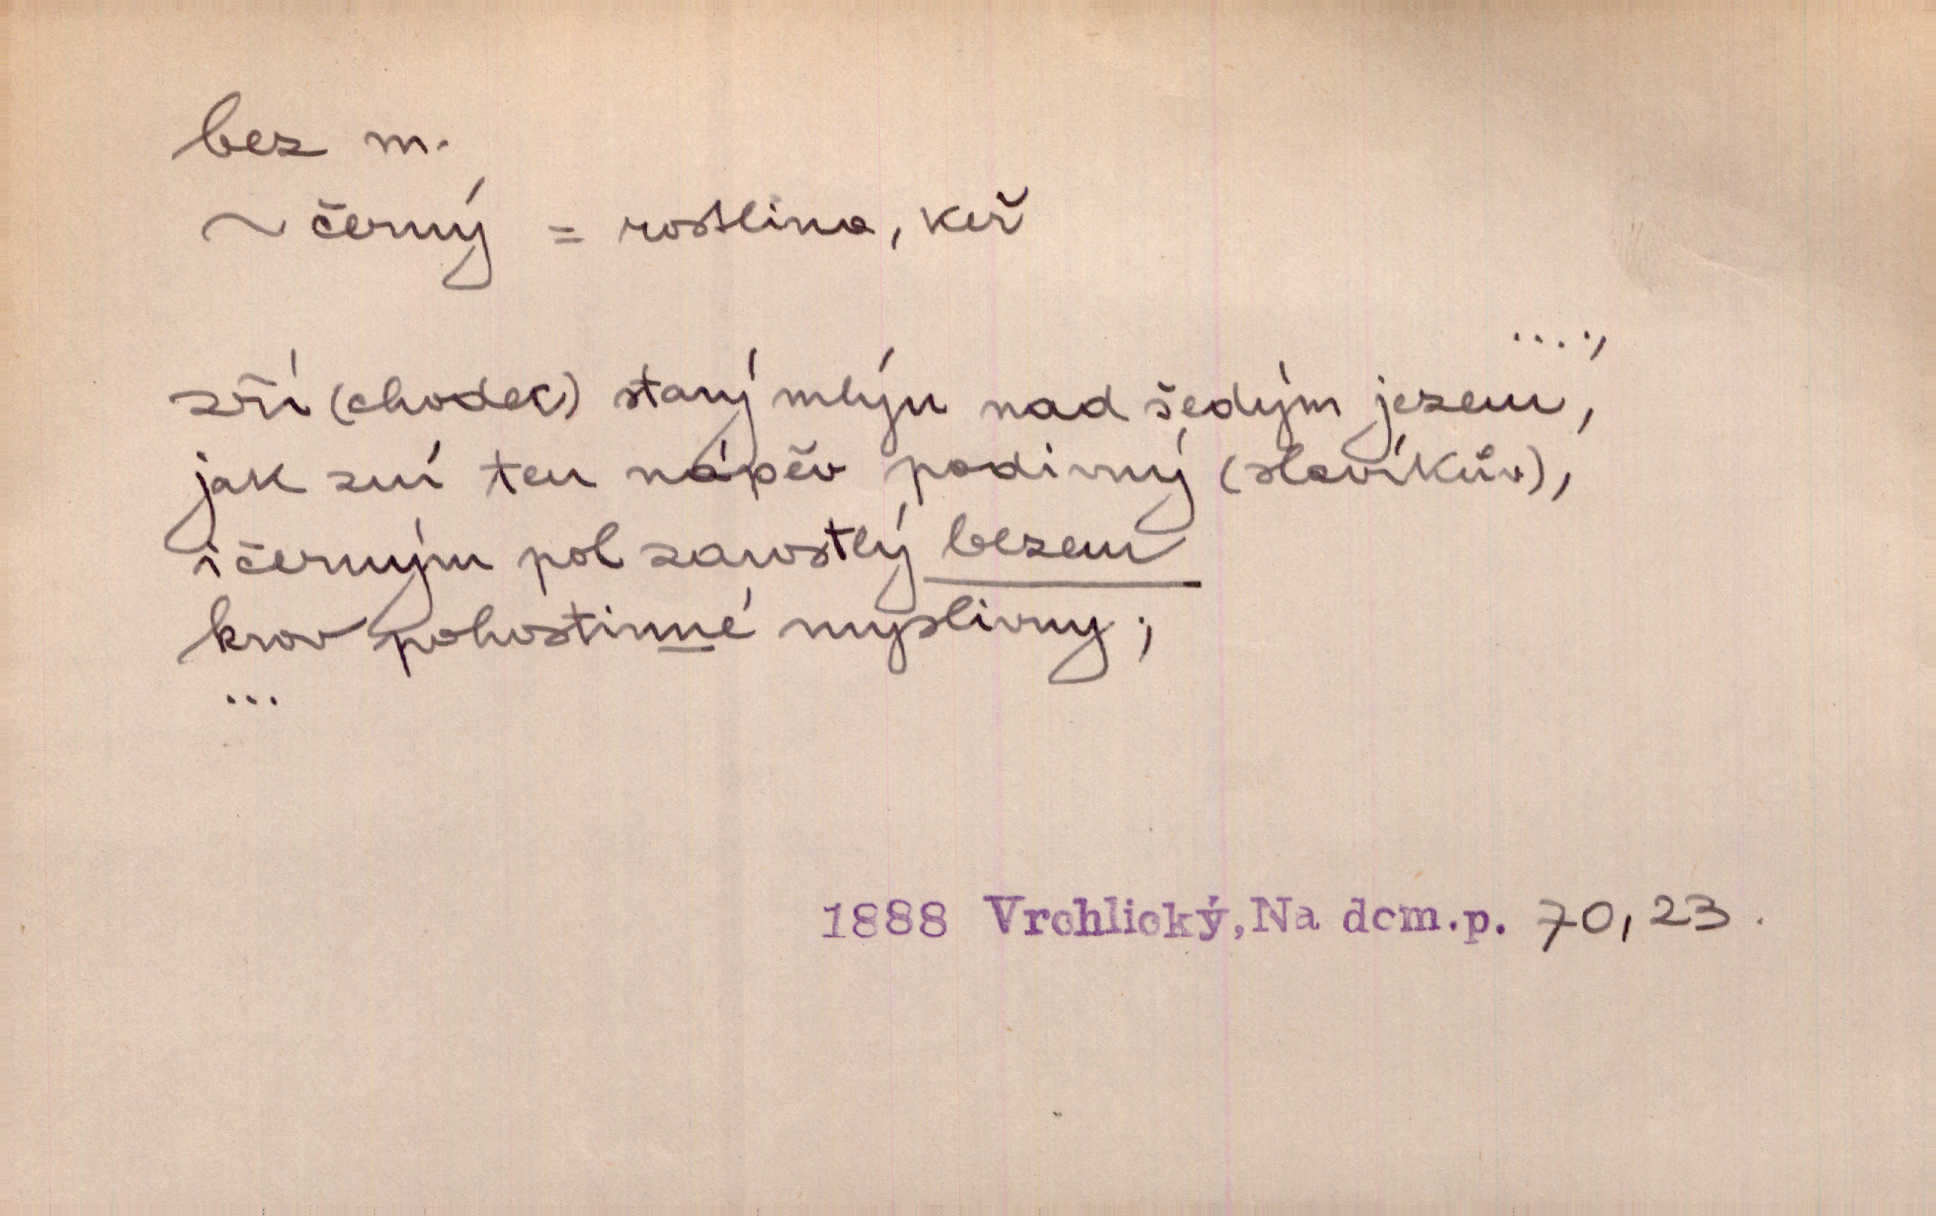 bez m.
~ černý = rostlina, keř
....,
zří (chodec) starý mlýn nad šedým jezem,
jak zní ten nápěv podivný (slavíkův),
i černým pol zarostlý bezem
krov pohostinné myslivny;
...
1888 Vrchlický, Na dom.p. 70, 23.